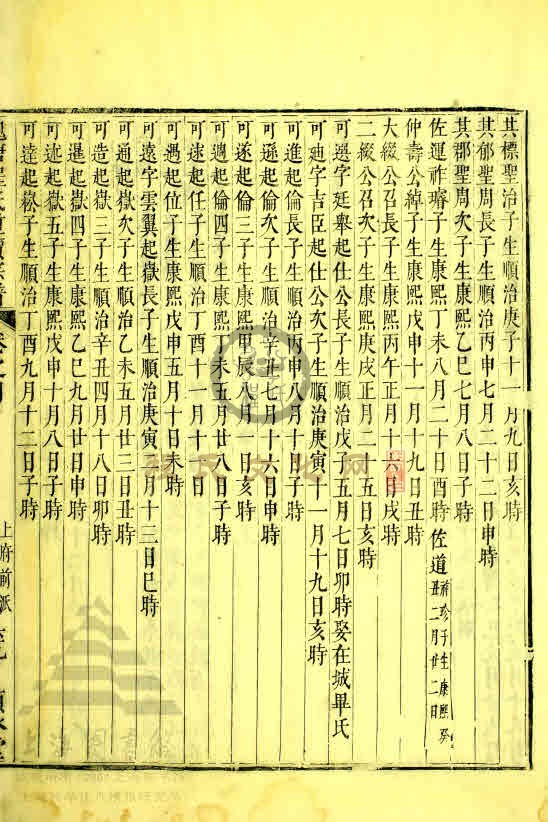 其標聖治子生順治庚子十一月九日亥時
其郁聖周長子生順治丙申七月二十二日申時
其郡聖周次子生康熙乙巳七月八日子時
佐運祚璿子生康熙丁未八月二十日酉時 佐道祚珍子生康熙癸丑二月廿二日
仲壽公綽子生康熙戊申十一月十九日丑時
大綬公召長子生康熙丙午正月十六日戌時
二綬公召次子生康熙庚戌正月二十五日亥時
可選字廷舉起仕公長子生順治戊子五月七日卯時娶在城畢氏
可迪字吉臣起仕公次子生順治庚寅十一月十九日亥時
可進起倫長子生順治丙申八月十日子時
可遜起倫次子生順治辛丑七月十六日申時
可遂起倫三子生康熙甲辰八月一日亥時
可適起倫四子生康熙丁未五月廿八日子時
可速起任子生順治丁酉十一月十日
可遇起位子生康熙戊申五月十日未時
可遠字雲翼起嶽長子生順治庚寅二月十三日巳時
可通起嶽次子生順治乙未五月廿三日丑時
可造起嶽三子生順治辛丑四月十八日卯時
可暹起嶽四子生康熙乙巳九月廿日申時
可迹起嶽五子生康熙戊申十月八日子時
可達起崧子生順治丁酉九月十二日子時
上府前派